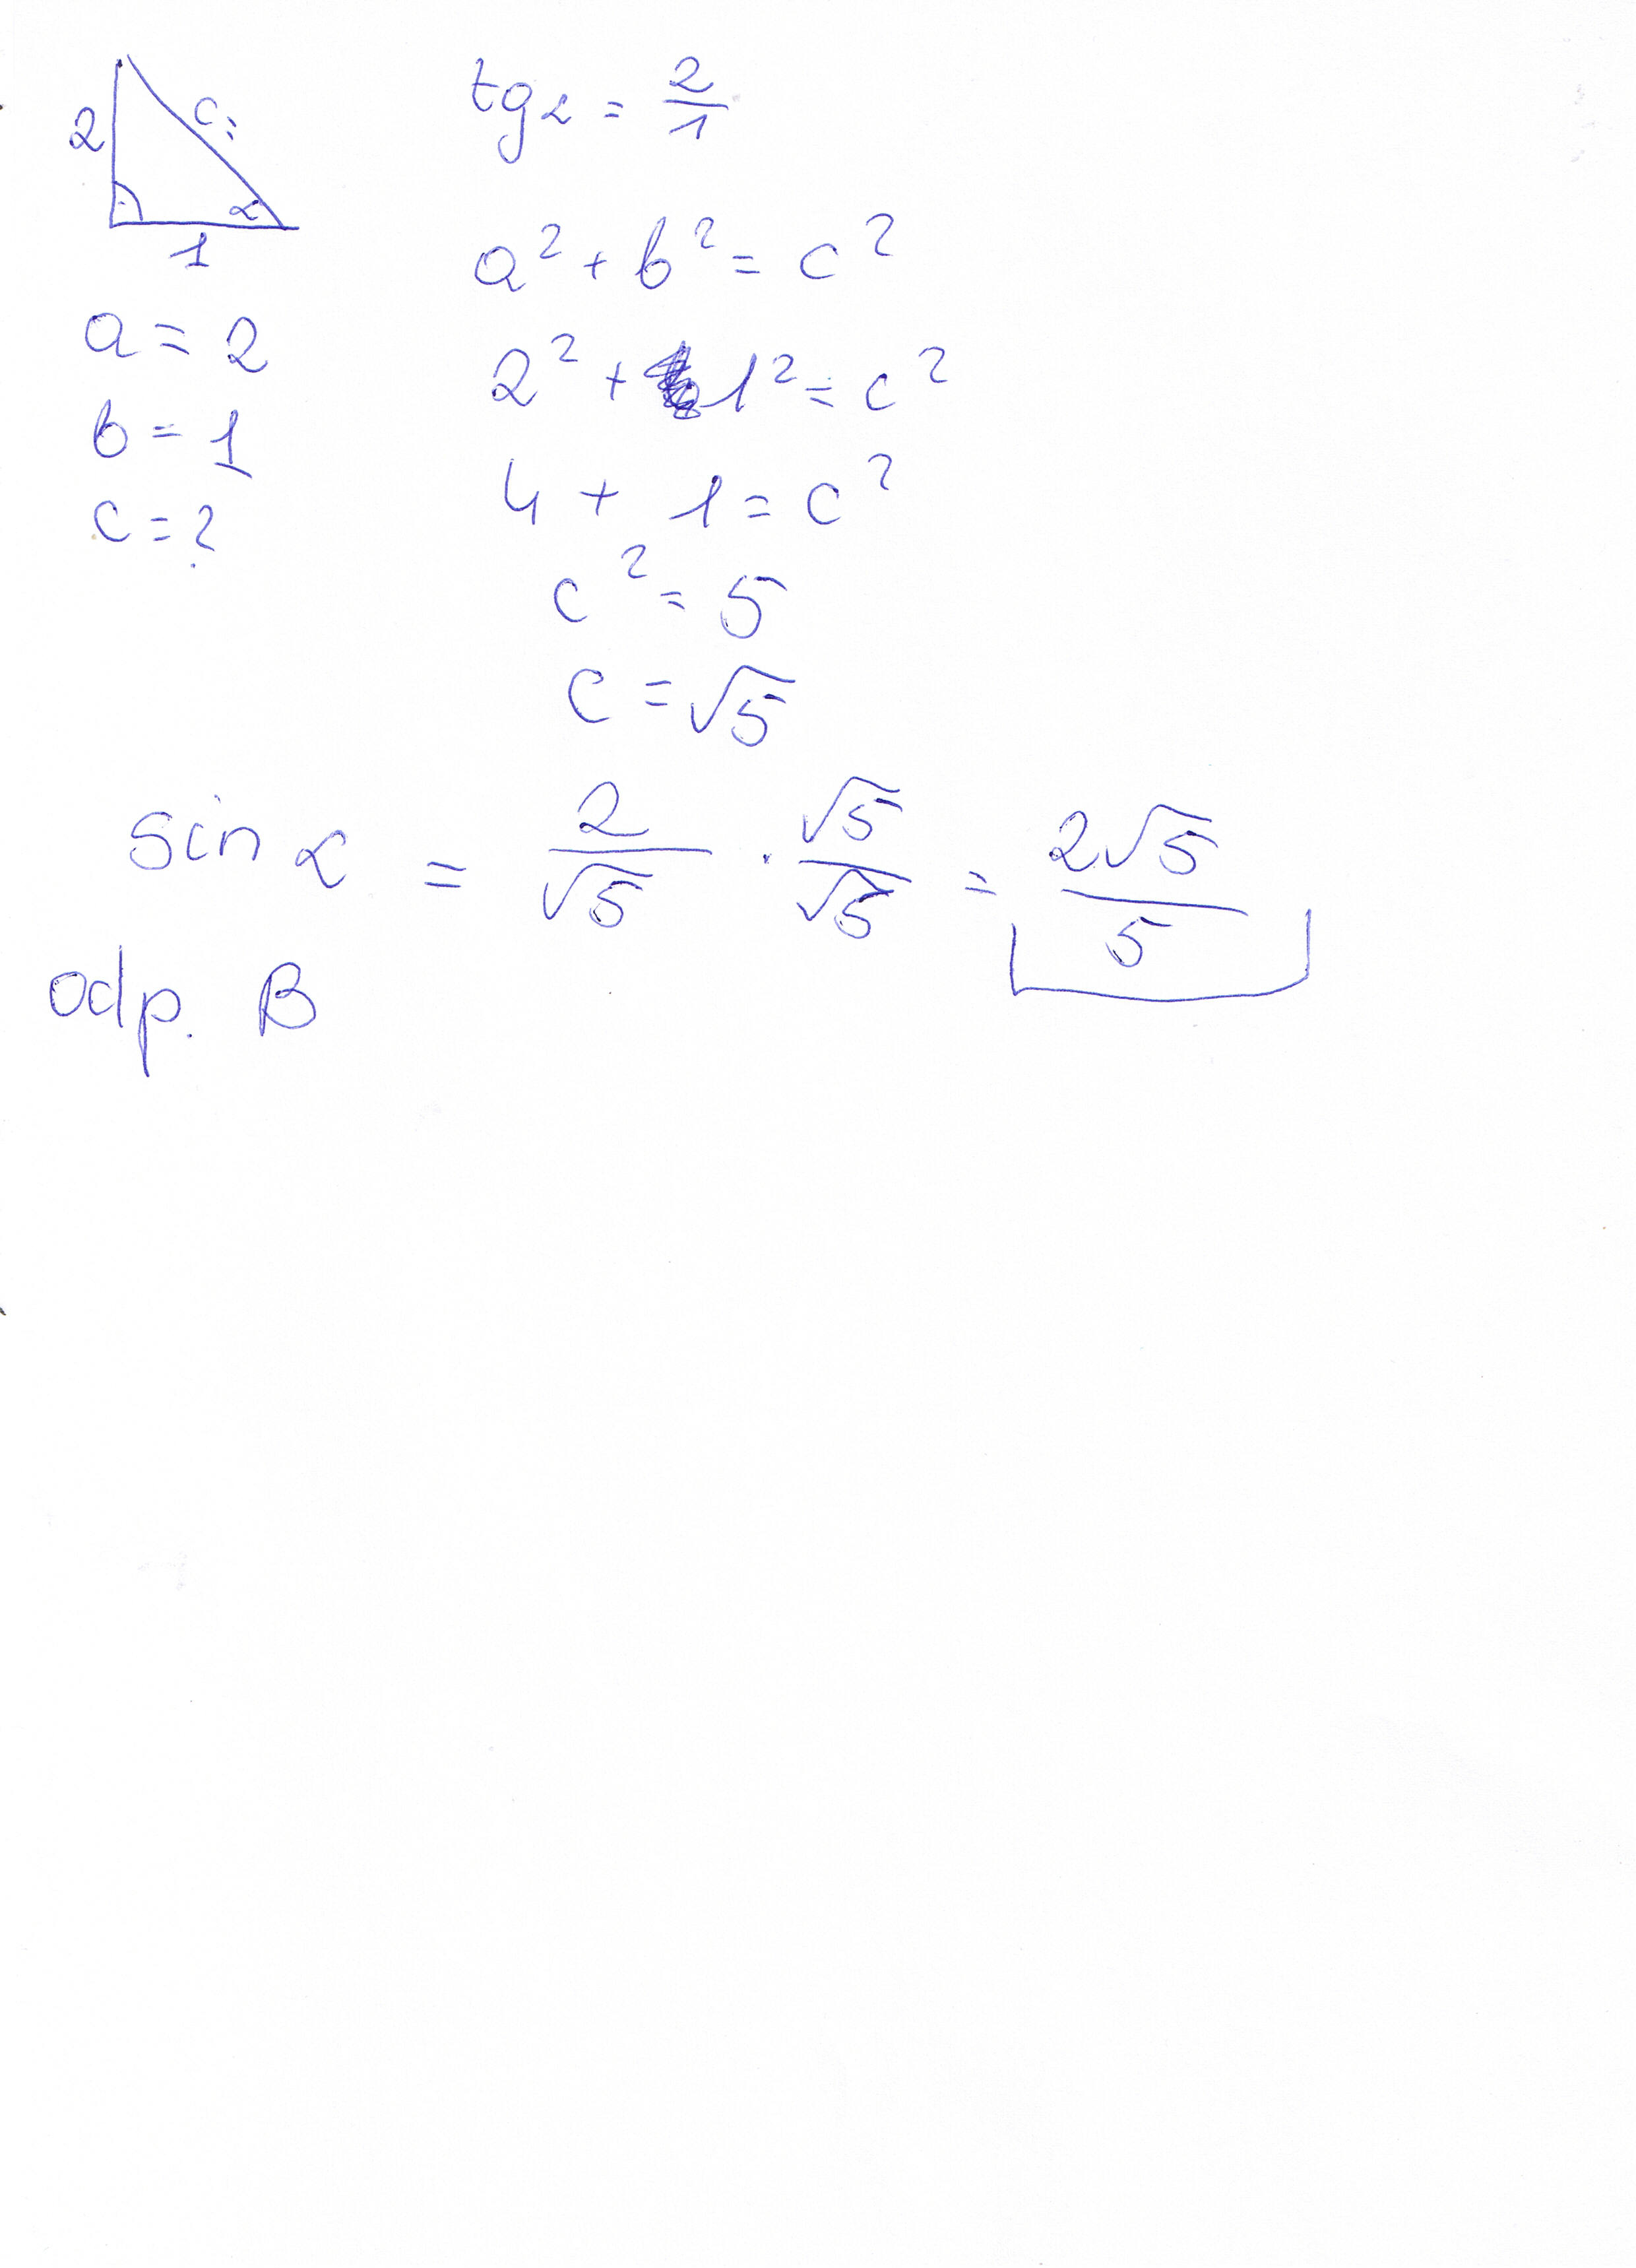 2
c=
α
1
a = 2
b = 1
c = ?
tg α = 2/1
a² + b² = c²
2² + 1² = c²
4 + 1 = c²
c² = 5
c = √5
sin α = 2/√5 · √5/√5 = 2√5/5
odp. B